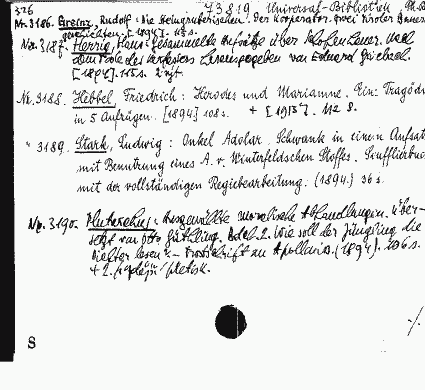 326 73819 Universal-Bibliothek
Nr. 3186. Greinz, Rudolf: Die Steingruberischen. Der Kooperator. Zwei Tiroler Bauern-
geschichten. [1894]. 118 s.
No. 3187. Herrig, Hans: Gesammelte Aufsätze über Schopenhauer. Nach
dem Tode des Verfassers herausgegeben von Eduard Grisebach.
[1894]. 118 s.
Nr. 3188. Hebbel, Friedrich: Herodes und Mariamne. Eine Tragödie
in 5 Aufzügen. [1894] 108 s. + [1913]. 112 S.
" 3189. Stark, Ludwig: Onkel Adolar. Schwank in einem Aufzug
mit Benutzung eines A. v. Winterfeldschen Stoffes. Soufflierbuch
mit der vollständigen Regiebearbeitung. (1894.) 36 s.
No. 3190. Plutarchus: Ausgewählte moralische Abhandlungen. Über-
setzt von Otto Güthling. Bdch. 2. Wie soll der Jüngling die
Dichter lesen? - Trostschrift an Apollonios. (1894). 106 s.
8